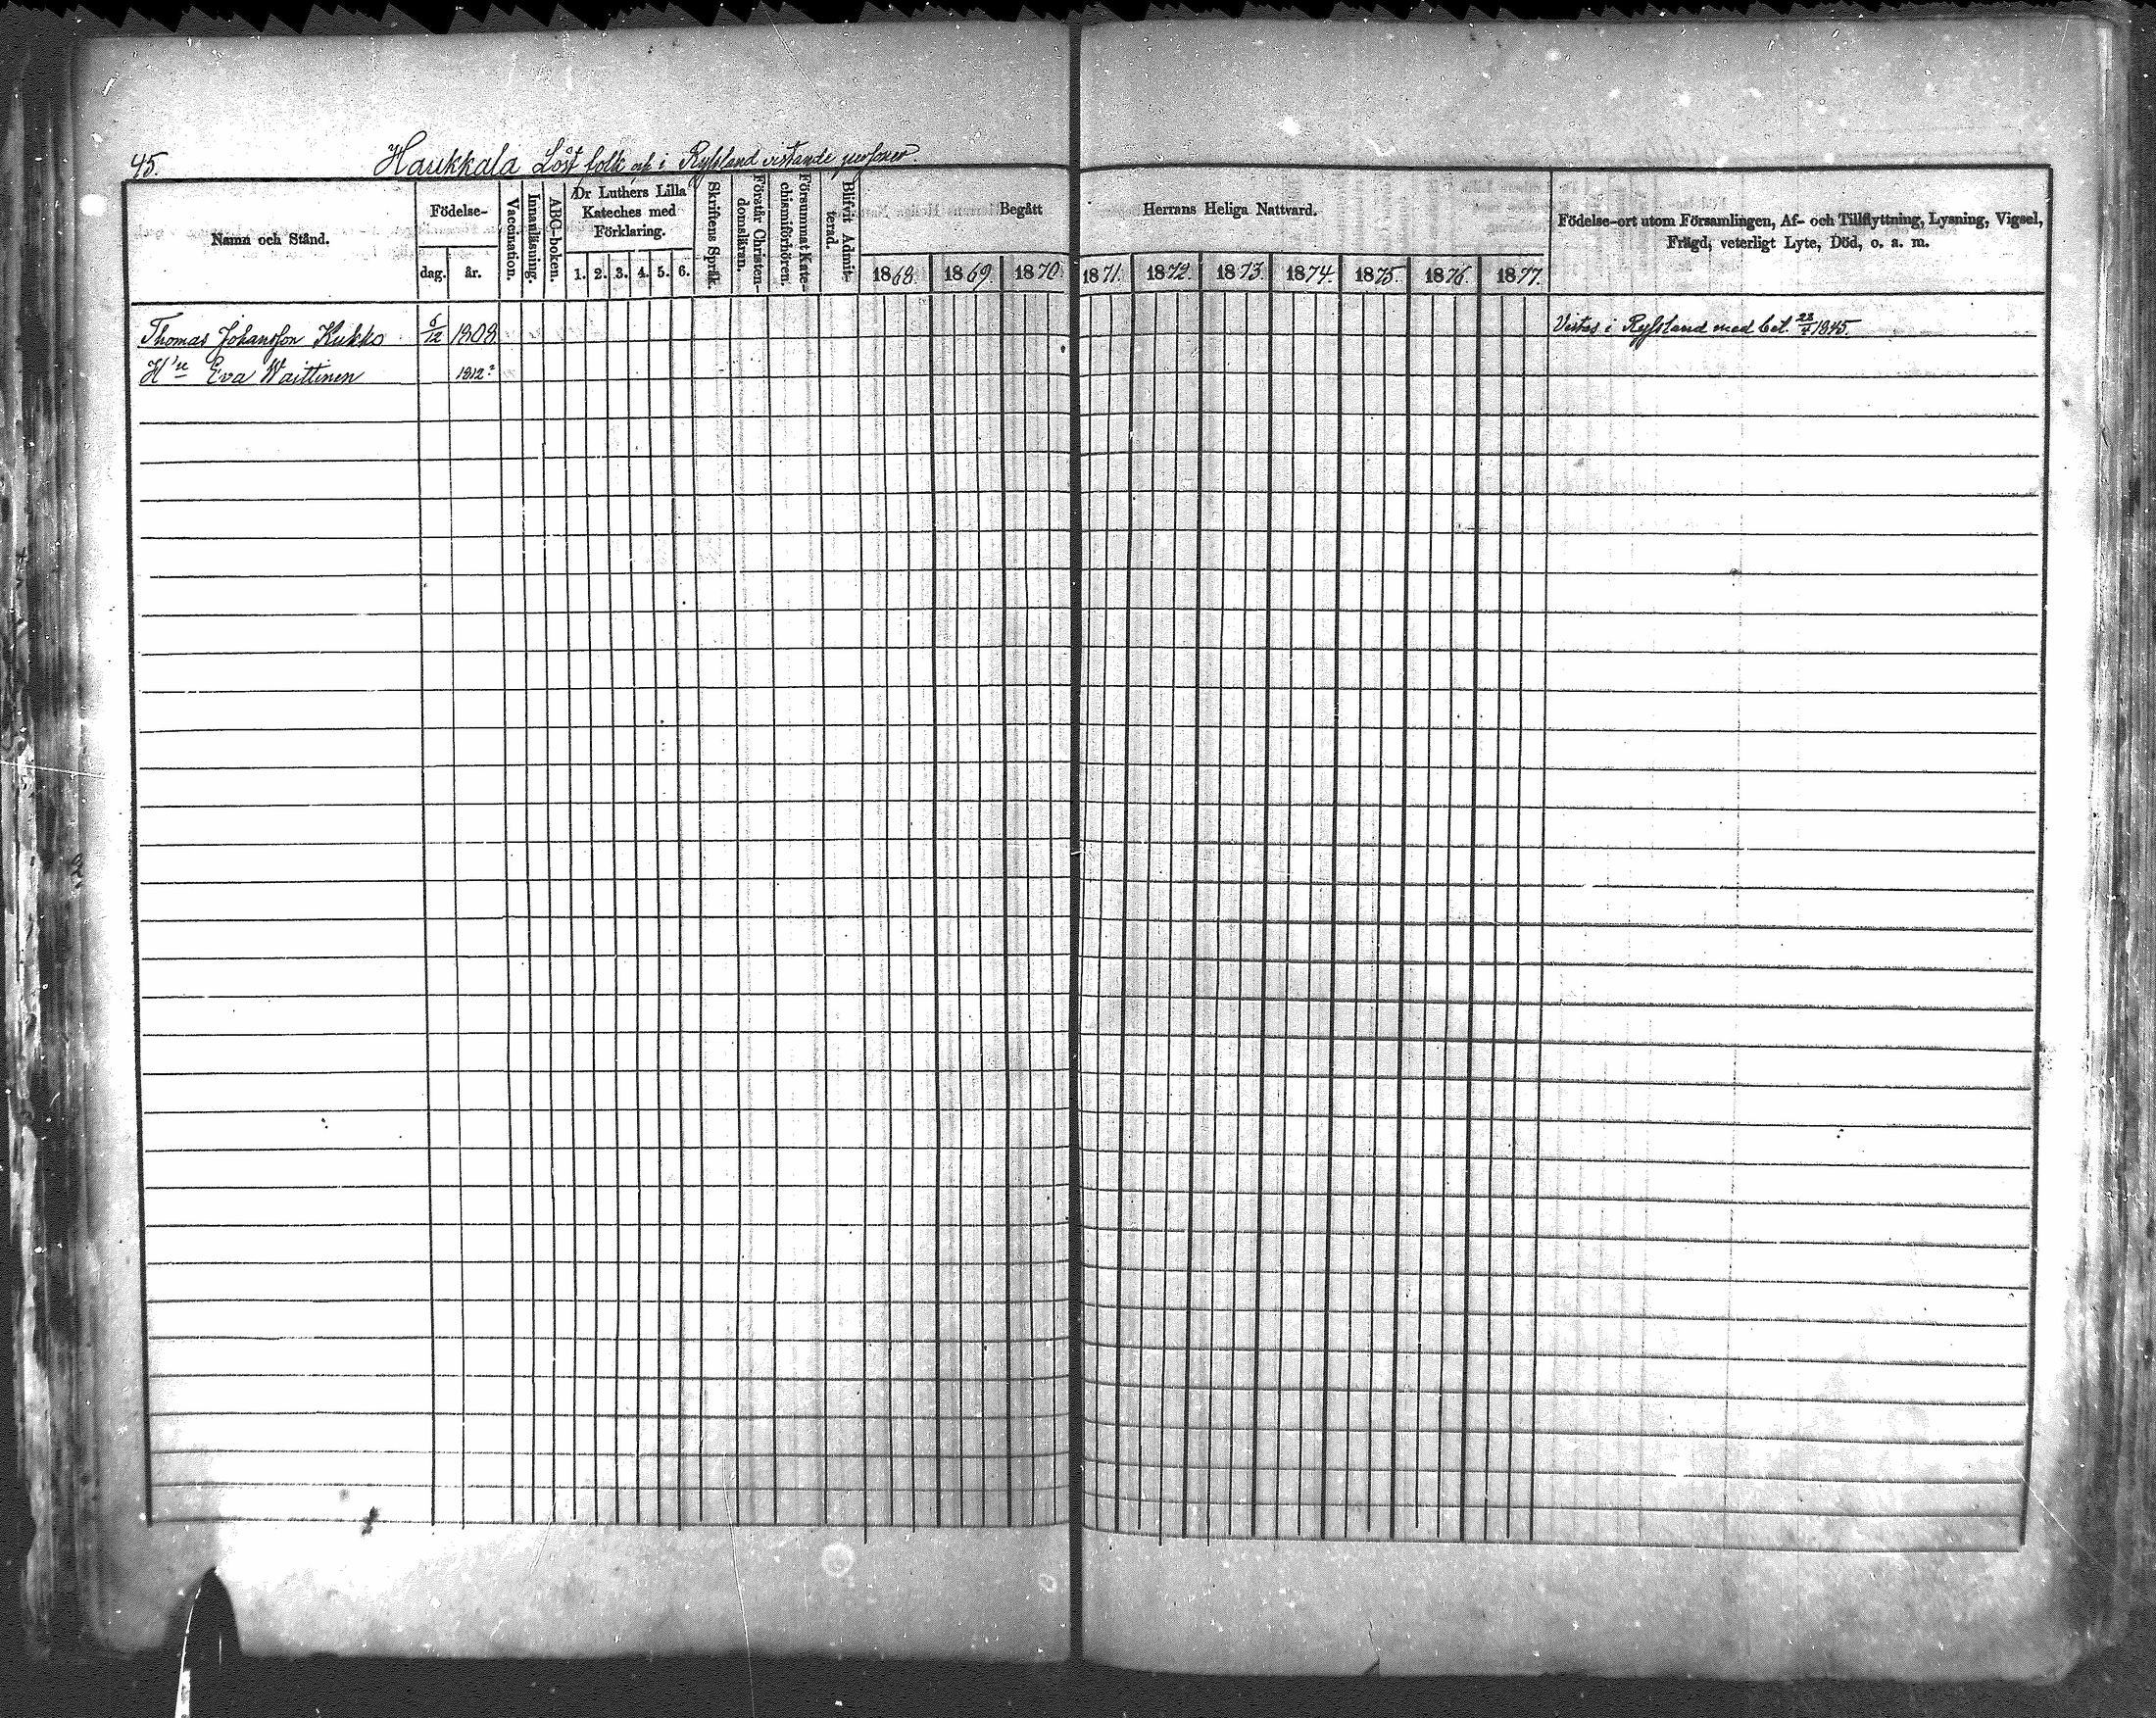 45. Haukkala Löst folk och i Ryssland vistande personer.
Namn och Stånd.
Födelse-
dag. år.
Vaccination.
Innanläsning.
ABC-boken.
Dr Luthers Lilla
Kateches med
Förklaring.
1. 2. 3. 4. 5. 6.
Skriftens Språk.
Förstår Christen-
domsläran.
Försummat Kate-
chismiförhören.
Blifvit Admit-
terad.
Begått Herrans Heliga Nattvard.
1868. 1869. 1870. 1871. 1872. 1873. 1874. 1875. 1876. 1877.
Födelse-ort utom Församlingen, Af- och Tillflyttning, Lysning, Vigsel,
Frägd, veterligt Lyte, Död, o. a. m.
Thomas Johansson Kukko 5/12 1808 Vistas i Ryssland med bet. 1845.
H:u Eva Waittinen 1812?